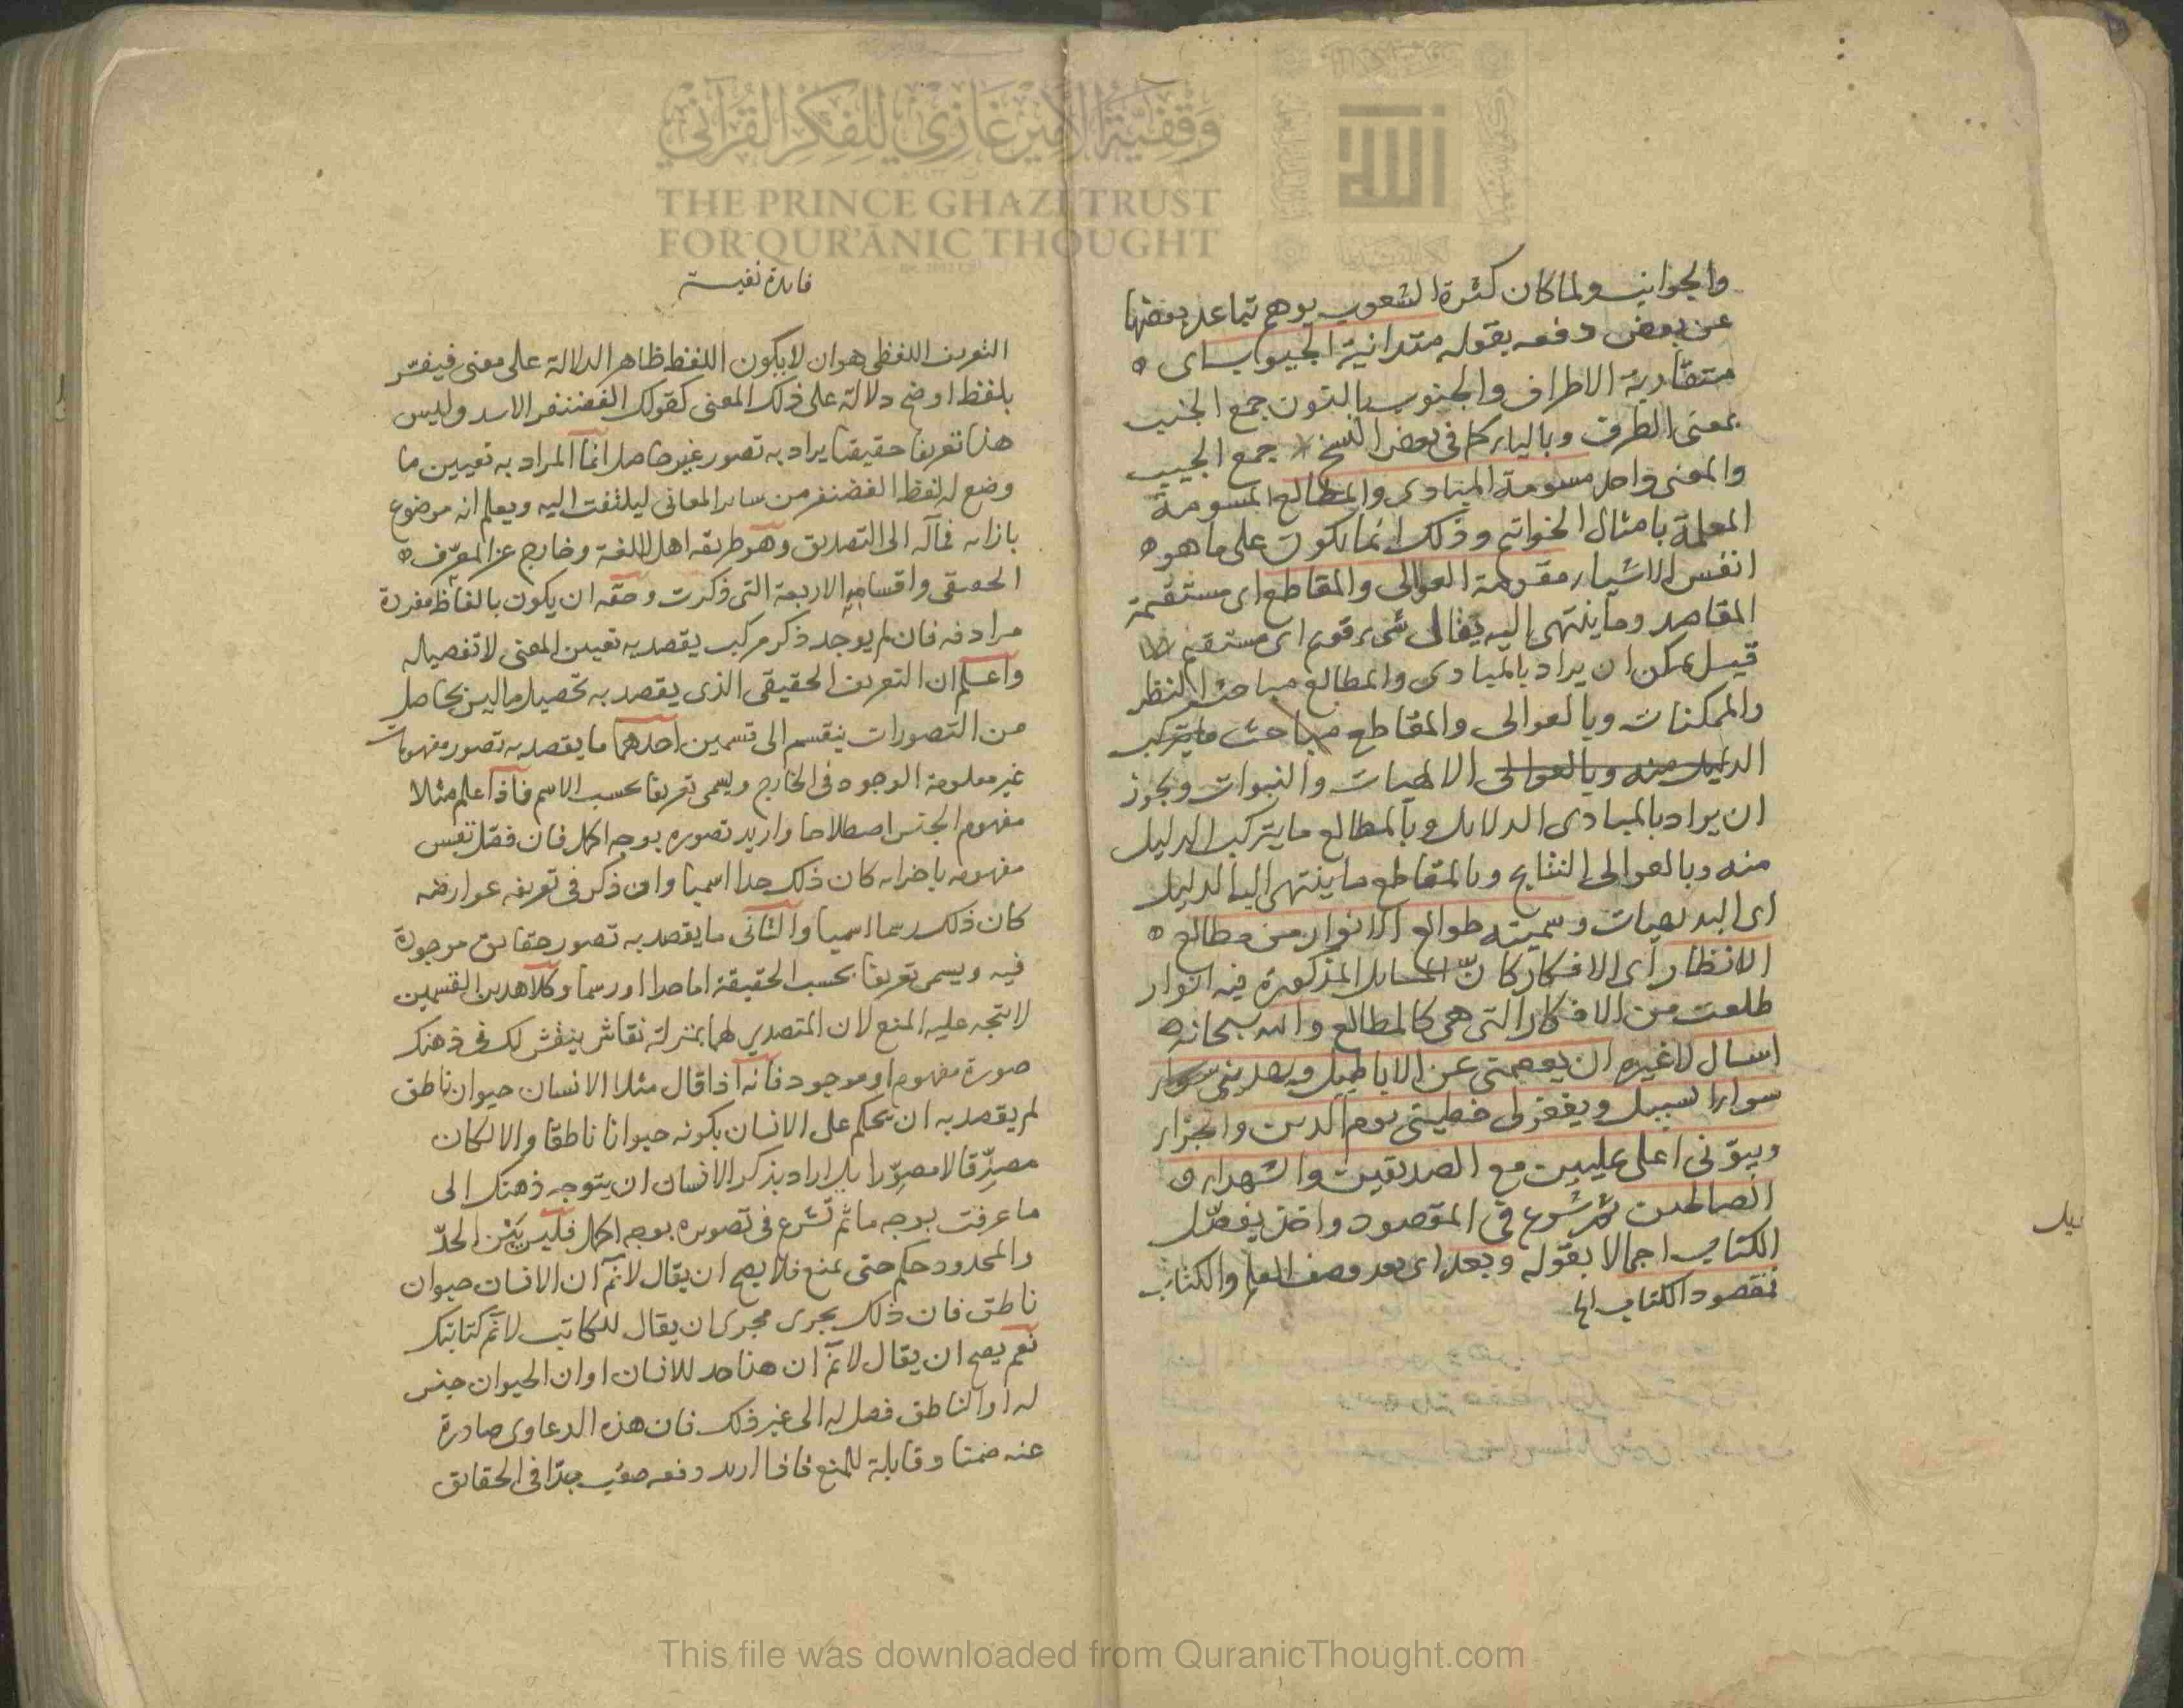 وقفية الأمير غازي للفكر القرآني
THE PRINCE GHAZI TRUST
FOR QUR'ĀNIC THOUGHT
والجوانب ولما كان كثرة الشعوب يوهم تباعد بعضها
عن بعض دفعه بقوله متدانية الجيوب اى
متقاربة الاطراف والجنوب بالنون جمع الجنب
بمعنى الطرف وبالياء كما فى بعض النسخ جمع الجيب
والمعنى واحد مسومة المبادى والمطالع المسومة
المعلمة بامثال الخواتم وذلك انما يكون على ما هو
انفس الاشياء مقومة العوالى والمقاطع اى مستقيمة
المقاصد وما ينتهى اليه يقال شىء قويم اى مستقيم
قيل يمكن ان يراد بالمبادى والمطالع مباحث النظر
والممكنات وبالعوالى والمقاطع مباحث ما يتركب
الدليل منه وبالعوالى الالهيات والنبوات ويجوز
ان يراد بالمبادى الدلائل وبالمطالع ما يتركب الدليل
منه وبالعوالى النتايج وبالمقاطع ما ينتهى اليه الدليل
اى البديهيات وسميته طوالع الانوار من مطالع
الانظار اى الافكار كان المسائل المذكورة فيه انوار
طلعت من الافكار التى هى كالمطالع والله سبحانه
اسال لا غيره ان يعصمنى عن الاباطيل ويهدينى سواء
سواء السبيل ويغفر لى خطيئتى يوم الدين والجزاء
ويبوئنى اعلى عليين مع الصديقين والشهداء و
الصالحين ثم شرع فى المقصود واخذ يفصل
الكتاب اجمالا بقوله وبعد اى بعد وصف العلم والكتاب
فمقصود الكتاب الخ
فايدة نفيسة
التعريف اللفظى هو ان لا يكون اللفظ ظاهر الدلالة على معنى فيفسر
بلفظ اوضح دلالة على ذلك المعنى كقولك الغضنفر الاسد وليس
هذا تعريفا حقيقيا يراد به تصور غير حاصل انما المراد به تعيين ما
وضع له لفظ الغضنفر من ساير المعانى ليلتفت اليه ويعلم انه موضوع
بازائه فمآله الى التصديق وهو طريقة اهل اللغة وخارج عن المعرف
الحقيقى واقسامه الاربعة التى ذكرت وحقه ان يكون بالفاظ مفردة
مرادفه فان لم يوجد ذكر مركب يقصد به تعيين المعنى لا تفصيله
واعلم ان التعريف الحقيقى الذى يقصد به تحصيل ما ليس بحاصل
من التصورات ينقسم الى قسمين احدهما ما يقصد به تصور مفهومات
غير معلومة الوجود فى الخارج ويسمى تعريفا بحسب الاسم فاذا علم مثلا
مفهوم الجنس اصطلاحا واريد تصوره بوجه اكمل فان فصل نفس
مفهومه باجزائه كان ذلك حدا اسميا وان ذكر فى تعريفه عوارضه
كان ذلك رسما اسميا والثانى ما يقصد به تصور حقايق موجودة
فيه ويسمى تعريفا بحسب الحقيقة اما حدا او رسما وكلا هذين القسمين
لا يتجه عليه المنع لان المتصدى لهما بمنزلة نقاش ينقش لك فى ذهنك
صورة مفهوم او موجود فانه اذا قال مثلا الانسان حيوان ناطق
لم يقصد به ان يحكم على الانسان بكونه حيوانا ناطقا والا لكان
مصدقا لا مصورا بل اراد بذكر الانسان ان يتوجه ذهنك الى
ما عرفت بوجه ما ثم شرع فى تصويره بوجه اكمل فليس بين الحد
والمحدود حكم حتى يمنع فلا يصح ان يقال لا نم ان الانسان حيوان
ناطق فان ذلك يجرى مجرى ان يقال للكاتب لا نم كتابتك
نعم يصح ان يقال لا نم ان هذا حد للانسان او ان الحيوان جنس
له او الناطق فصل له الى غير ذلك فان هذه الدعاوى صادرة
عنه ضمنا وقابلة للمنع فاذا اريد دفعه صعب جدا فى الحقائق
This file was downloaded from QuranicThought.com